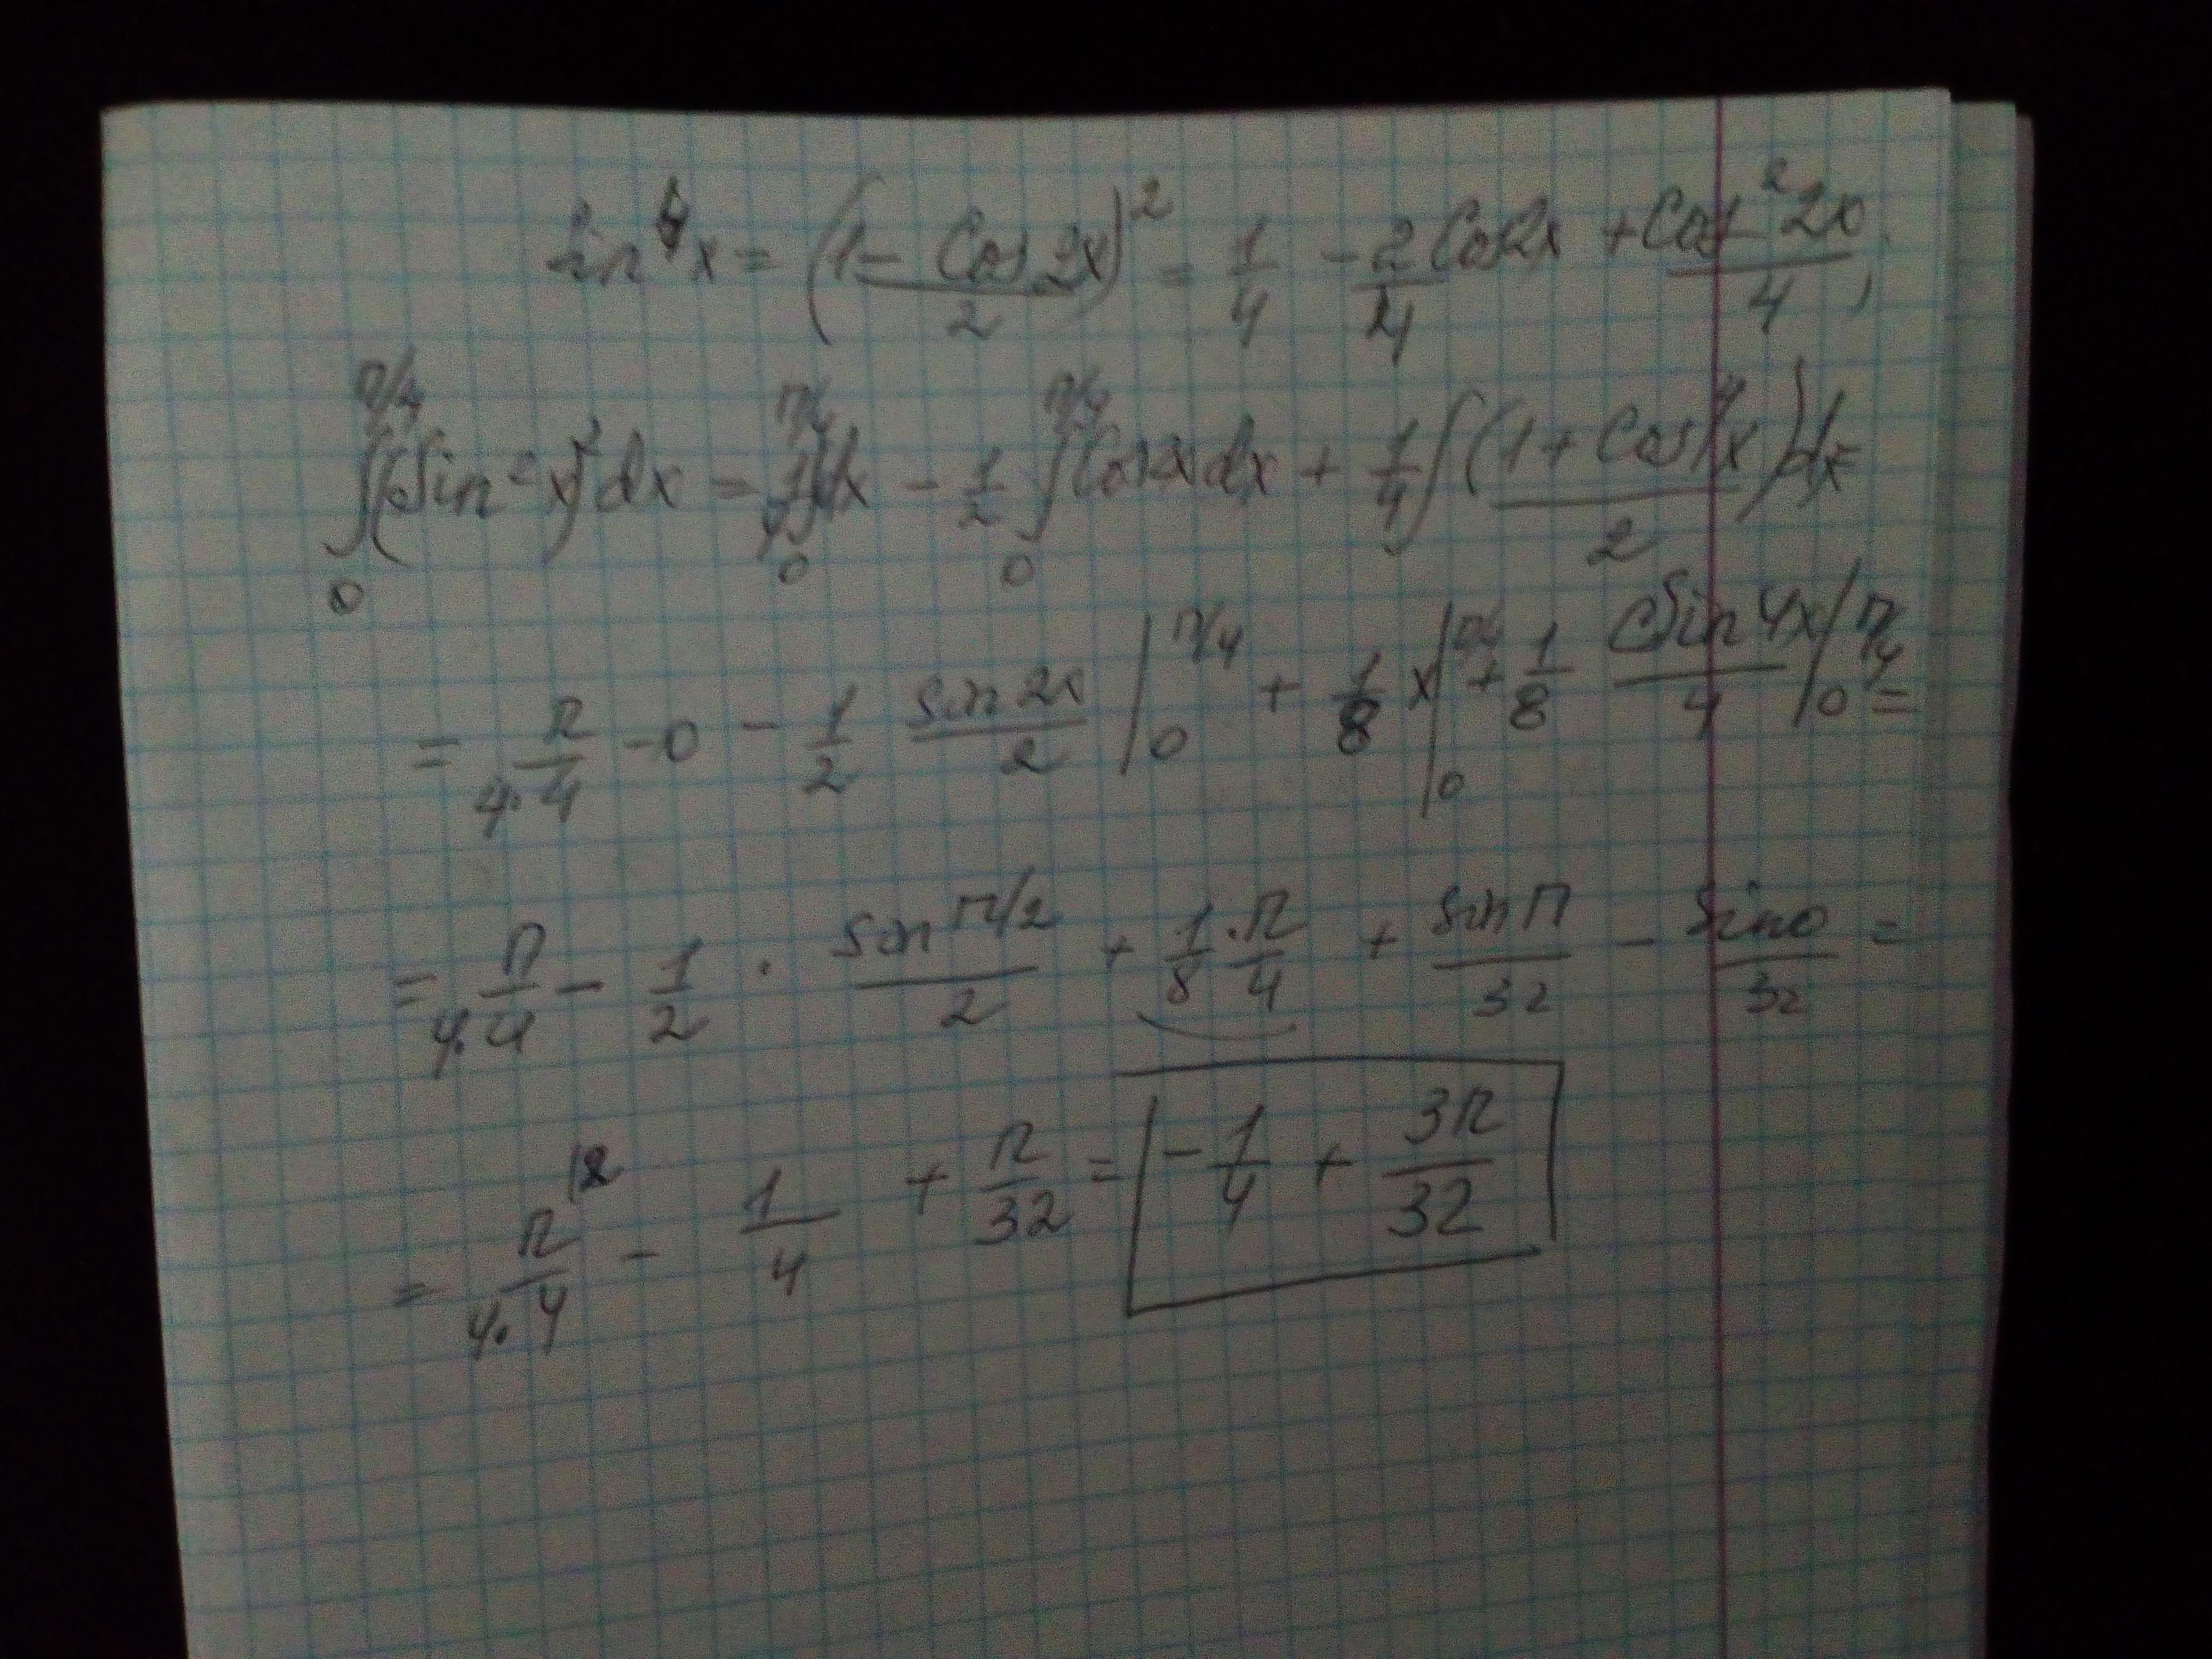 sin⁴x = (1 - Cos 2x / 2)² = 1/4 - 2/4 Cos2x + Cos²2x / 4,
∫₀^(π/4) (Sin²x)² dx = 1/4 ∫₀^(π/4) dx - 1/2 ∫₀^(π/4) Cos2x dx + 1/4 ∫ (1 + Cos4x / 2) dx =
= π/4·4 - 0 - 1/2 sin2x/2 |₀^(π/4) + 1/8 x |₀^(π/4) + 1/8 Sin4x/4 |₀^(π/4) =
= π/4·4 - 1/2 · sin π/2 / 2 + 1/8 · π/4 + sin π/32 - sin0/32 =
= π/4·4 |2 - 1/4 + π/32 = -1/4 + 3π/32